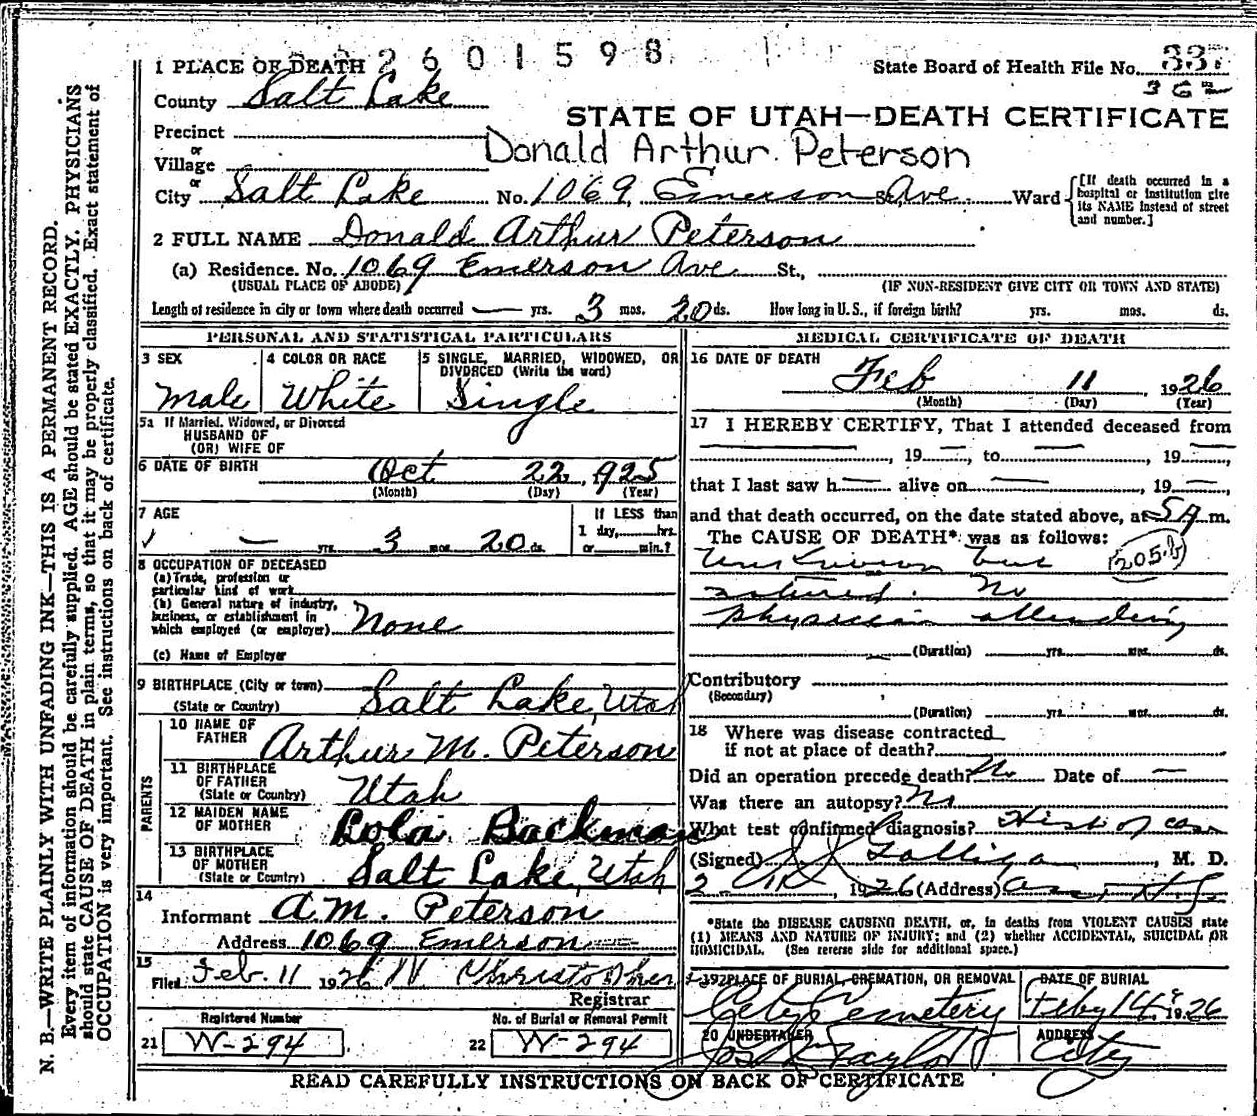 2601598
1 PLACE OF DEATH
State Board of Health File No. 337
362
County Salt Lake
STATE OF UTAH—DEATH CERTIFICATE
Precinct
or
Village
Donald Arthur Peterson
or
City Salt Lake No. 1069 Emerson St. Ave. Ward [If death occurred in a hospital or institution give its NAME instead of street and number.]
2 FULL NAME Donald Arthur Peterson
(a) Residence. No. 1069 Emerson Ave St.,
(USUAL PLACE OF ABODE) (IF NON-RESIDENT GIVE CITY OR TOWN AND STATE)
Length of residence in city or town where death occurred — yrs. 3 mos. 20 ds. How long in U. S., if foreign birth? yrs. mos. ds.
PERSONAL AND STATISTICAL PARTICULARS
3 SEX
Male
4 COLOR OR RACE
White
5 SINGLE, MARRIED, WIDOWED, OR
DIVORCED (Write the word)
Single
5a If Married, Widowed, or Divorced
HUSBAND OF
(OR) WIFE OF
6 DATE OF BIRTH Oct 22, 1925
(Month) (Day) (Year)
7 AGE
— yrs. 3 mos. 20 ds.
If LESS than
1 day, hrs.
or min.?
8 OCCUPATION OF DECEASED
(a) Trade, profession or
particular kind of work
(b) General nature of industry,
business, or establishment in
which employed (or employer) None
(c) Name of Employer
9 BIRTHPLACE (City or town) Salt Lake, Utah
(State or Country)
PARENTS
10 NAME OF
FATHER Arthur M. Peterson
11 BIRTHPLACE
OF FATHER
(State or Country) Utah
12 MAIDEN NAME
OF MOTHER Lola Backman
13 BIRTHPLACE
OF MOTHER
(State or Country) Salt Lake, Utah
14
Informant A.M. Peterson
Address 1069 Emerson
15
Filed Feb. 11 1926 W Christopher
Registrar
Registered Number
21 W-294
No. of Burial or Removal Permit
22 W-294
MEDICAL CERTIFICATE OF DEATH
16 DATE OF DEATH
Feb 11 1926
(Month) (Day) (Year)
17 I HEREBY CERTIFY, That I attended deceased from
—, 19 —, to —, 19 —,
that I last saw h — alive on —, 19 —,
and that death occurred, on the date stated above, at 5 A m.
The CAUSE OF DEATH* was as follows:
Unknown but (205.b)
natural. No
physician attending
(Duration) yrs. mos. ds.
Contributory
(Secondary)
(Duration) yrs. mos. ds.
18 Where was disease contracted
if not at place of death?
Did an operation precede death? No Date of —
Was there an autopsy? No
What test confirmed diagnosis? Hist of case
(Signed) Galligan, M. D.
2 1926 (Address)
*State the DISEASE CAUSING DEATH, or, in deaths from VIOLENT CAUSES state
(1) MEANS AND NATURE OF INJURY; and (2) whether ACCIDENTAL, SUICIDAL OR
HOMICIDAL. (See reverse side for additional space.)
19 PLACE OF BURIAL, CREMATION, OR REMOVAL
City Cemetery
DATE OF BURIAL
Feby 14 1926
20 UNDERTAKER
Jos Taylor
ADDRESS
City
READ CAREFULLY INSTRUCTIONS ON BACK OF CERTIFICATE
N. B.—WRITE PLAINLY WITH UNFADING INK—THIS IS A PERMANENT RECORD.
Every item of information should be carefully supplied. AGE should be stated EXACTLY. PHYSICIANS
should state CAUSE OF DEATH in plain terms, so that it may be properly classified. Exact statement of
OCCUPATION is very important. See instructions on back of certificate.